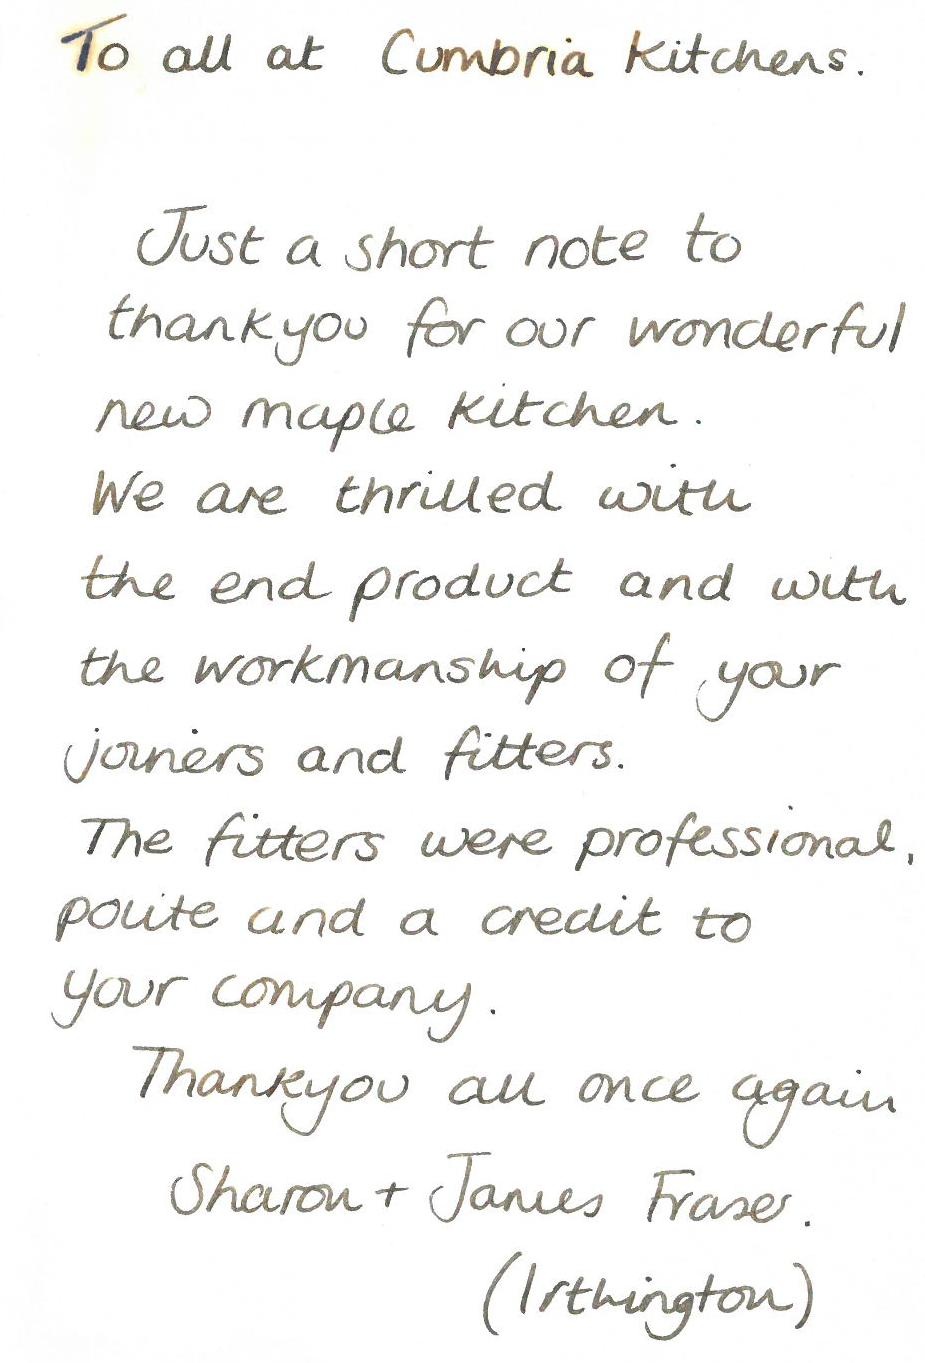 To all at Cumbria Kitchens.
Just a short note to
thankyou for our wonderful
new maple kitchen.
We are thrilled with
the end product and with
the workmanship of your
joiners and fitters.
The fitters were professional,
polite and a credit to
your company.
Thankyou all once again
Sharon + James Fraser.
(Irthington)